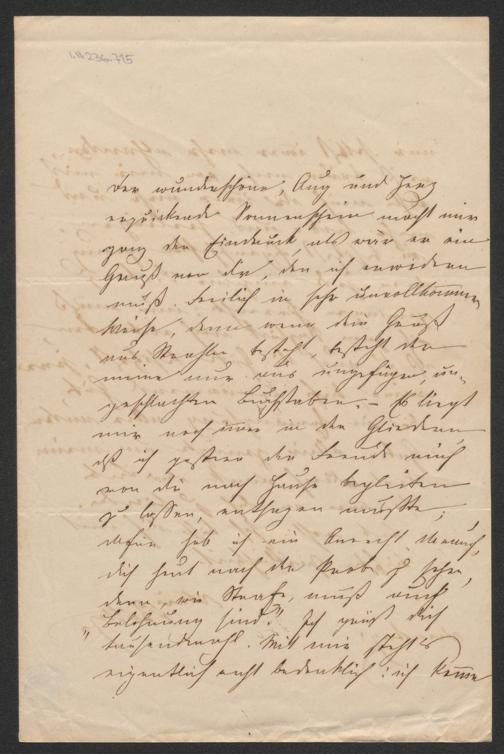 I.N. 236.715
Der wunderschöne, Aug und Herz
erquickende Sonnenschein macht mir
ganz den Eindruck als wär er ein
Gruß von dir, den ich erwidern
muß. Freilich in sehr unvollkommner
Weise, denn wenn dein Gruß
aus Strahlen besteht, besteht der
meine nur aus ungefügen, un-
geschlachten Buchstaben. – Es liegt
mir noch immer in den Gliedern
daß ich gestern der Freude mich
von dir nach Hause begleiten
zu lassen, entsagen mußte;
dafür hab ich ein Anrecht darauf,
dich heut nach der Probe zu sehen,
denn wo Strafe, muß auch
Belohnung sind." Ich grüß dich
tausendmahl. Mit mir steht's
eigentlich recht bedenklich: ich kenne